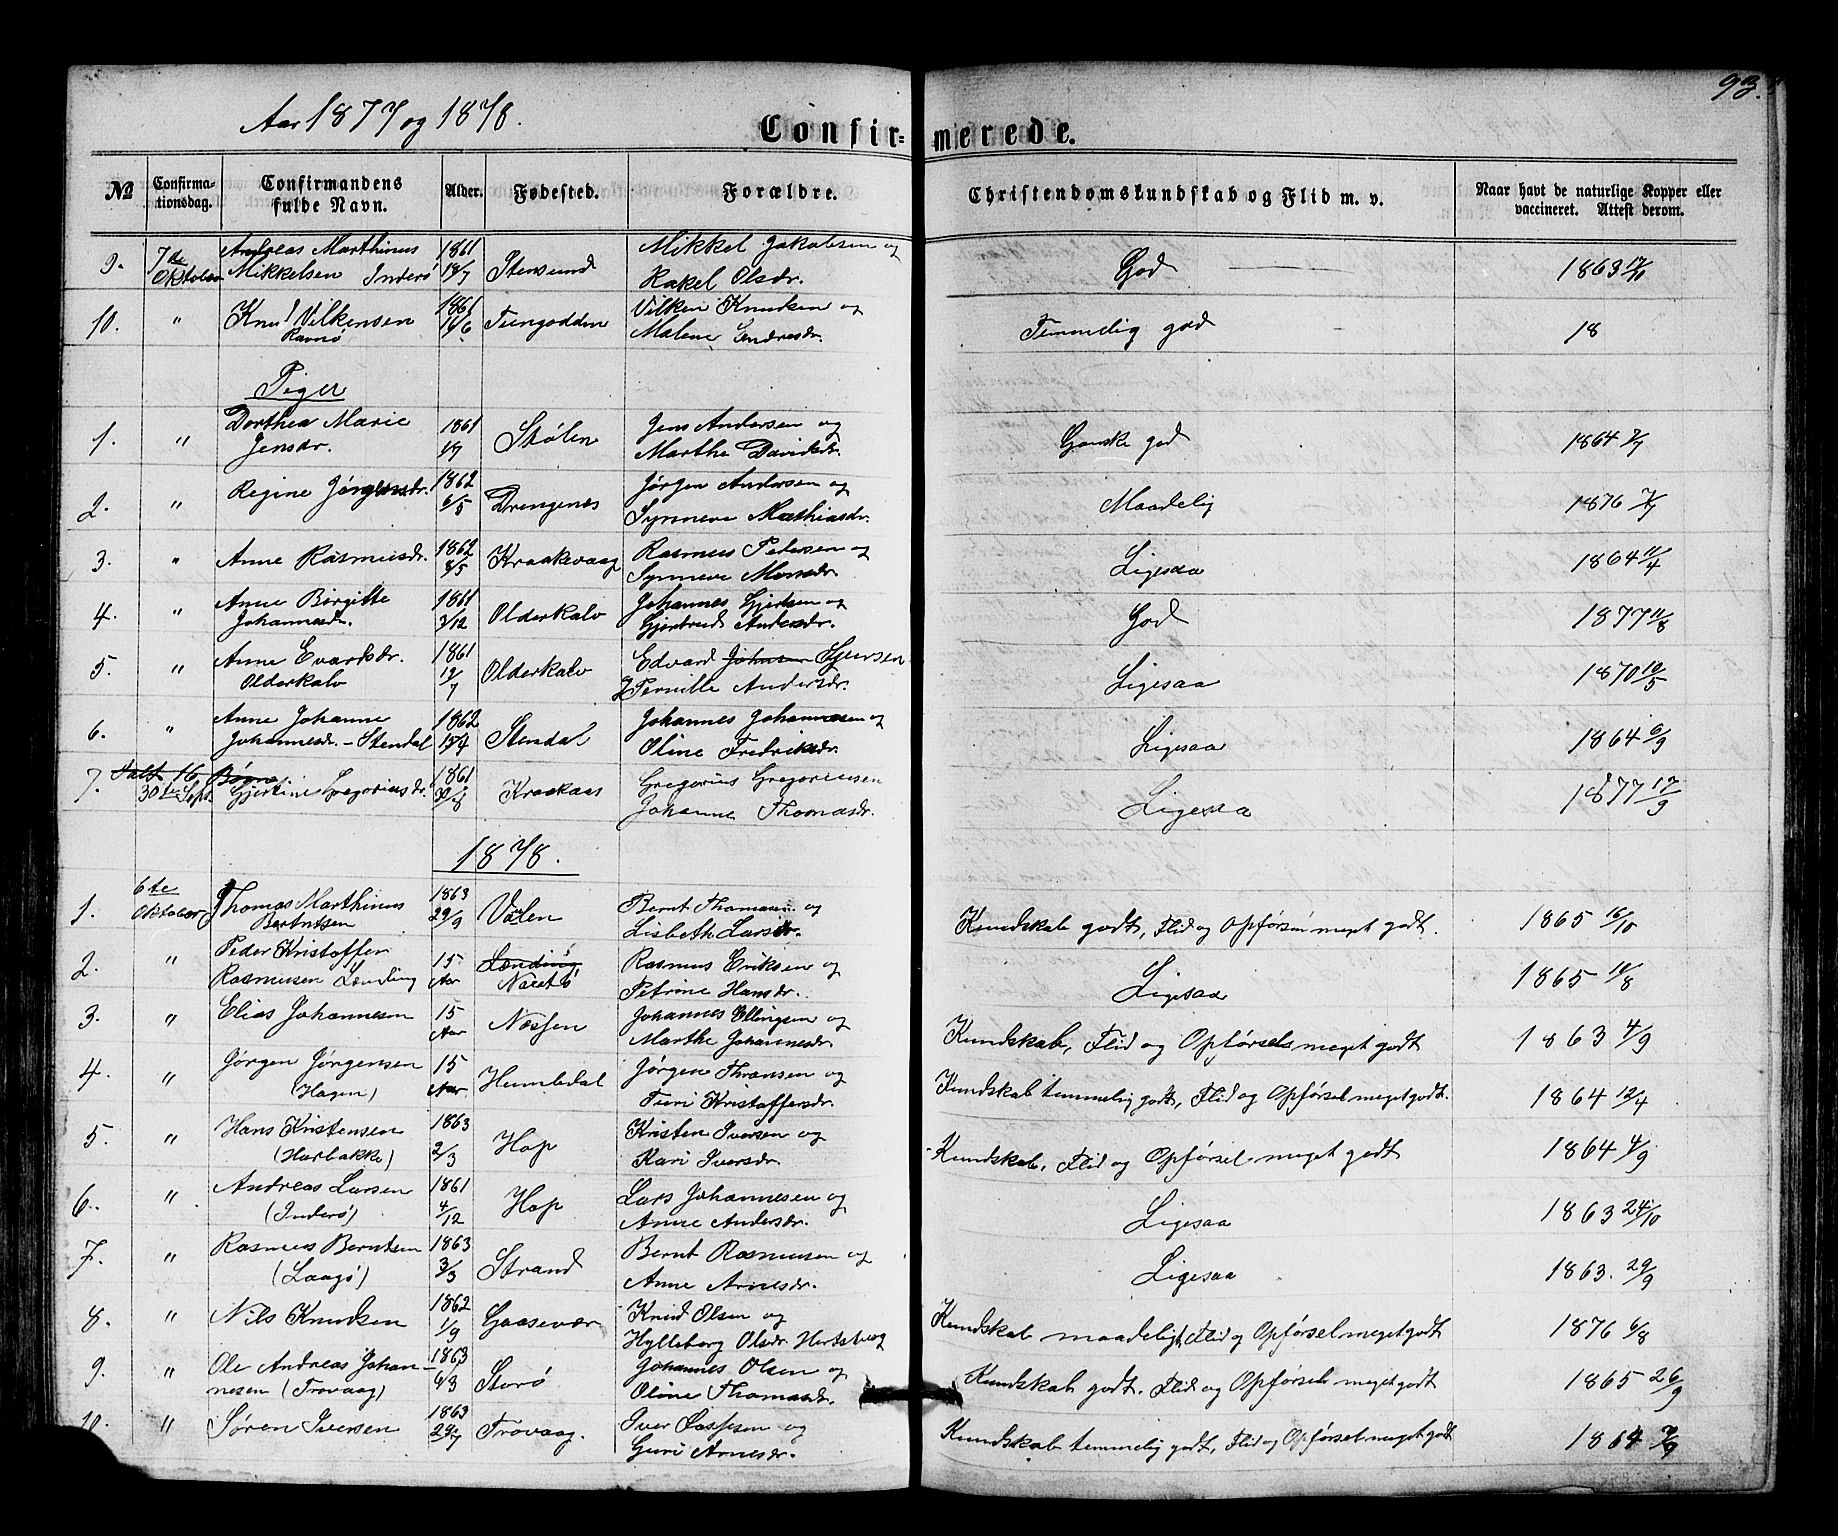 93.
Aar 1877 og 1878.
Confir= merede.
No
Confirma-tionsdag.
Confirmandens fulde Navn.
Alder.
Fødested.
Forældre.
Christendomskundskab og Flid m. v.
Naar havt de naturlige Kopper eller vaccineret. Attest derom.
9. 7de Andreas Marthinus 1861 Mikkel Jakobsen og
Oktober Mikkelsen Inderø 18/7 Stensund Rakel Olsdr. God 1863 17/11
10. " Knut Vilkensen 1861 Vilken Knudsen og
Ravnø 14/6 Tungodden Malene Endresdr. Temmelig god 18
Piger
1. " Dorthea Marie 1861 Jens Andersen og
Jensdr. Skølen Marthe Davidsdr. Ganske god 1864
2. " Regine Jørgensdr. 1862 Jørgen Andersen og
6/5 Drengenes Synneve Mathiasdr. Maadelig 1876
3. " Anne Rasmusdr. 1862 Rasmus Pedersen og
8/5 Kraakevaag Synneve Monsdr. Ligesaa 1864 11/4
4. " Anne Birgitte 1861 Johannes Gjertsen og
Johannesdr. 3/12 Olderkalv Gjertrud Andersdr. God 1877 11/8
5. " Anne Evardsdr. 1861 Edvard Johnsen
Olderkalv 12/7 Olderkalv Pernille Andersdr. Ligesaa 1870 12/5
6. " Anne Johanne 1862 Johannes Johannesen og
Johannesdr. - Stendal 15/4 Stendal Oline Fredriksdr. Ligesaa 1864 6/9
Ialt 16 Børn
7. 30te Sept. Gjertine Gregoriusdr. 1861 Kraakaas Gregorius Gregoriussen
Johanne Thomasdr. Ligesaa 1877 17/9
1878.
1. 6te Thomas Marthinus 1863 Bernt Thomasen og
Oktober Berntsen 29/9 Valen Lisbeth Larsdr. Kundskab godt, Flid og Opførsel meget godt. 1865 16/10
2. " Peder Kristoffer 15 Lænding Rasmus Eriksen og
Rasmusen Lænding Aar Nærø Petrine Hansdr. Ligesaa 1865 14/8
3. " Elias Johannesen 15 Johannes Ellingsen og
Aar Nessen Marthe Johannesdr. Kundskab, Flid og Opførsels meget godt 1863 4/9
4. " Jørgen Jørgensen 15 Jørgen Thransen og
(Hagen) Aar Humledal Turi Kristoffersdr. Kundskab temmelig godt, Flid og Opførsel meget godt. 1864 12/4
5. " Hans Kristensen 1863 Kristen Iversen og
(Harbakke) 2/3 Hop Kari Iversdr. Kundskab, Flid og Opførsel meget godt 1864 4/9
6. " Andreas Larsen 1861 Lars Johannesen og
(Inderø) 4/12 Hop Anne Andersdr. Ligesaa 1863 24/10
7. " Rasmus Berntsen 1863 Bernt Rasmusen og
(Laagø) 3/3 Strand Anne Arnesdr. Ligesaa 1863. 29/9
8. " Nils Knudsen 1862 Knud Olsen og
1/9 Gaasevær Hylleborg Olsdr. Hertsberg Kundskab maadeligt, Flid og Opførsel meget godt 1876 6/8
9. " Ole Andreas Johan- 1863 Johannes Olsen og
nesen (Trovaag) 4/3 Storø Oline Thomasdr. Kundskab godt. Flid og Opførsel meget godt 1865 26/9
10. " Søren Iversen 1863 Iver Lassesen og
Trovaag. Guri Arnesdr. Kundskab temmelig godt, Flid og Opførsel meget godt 1864